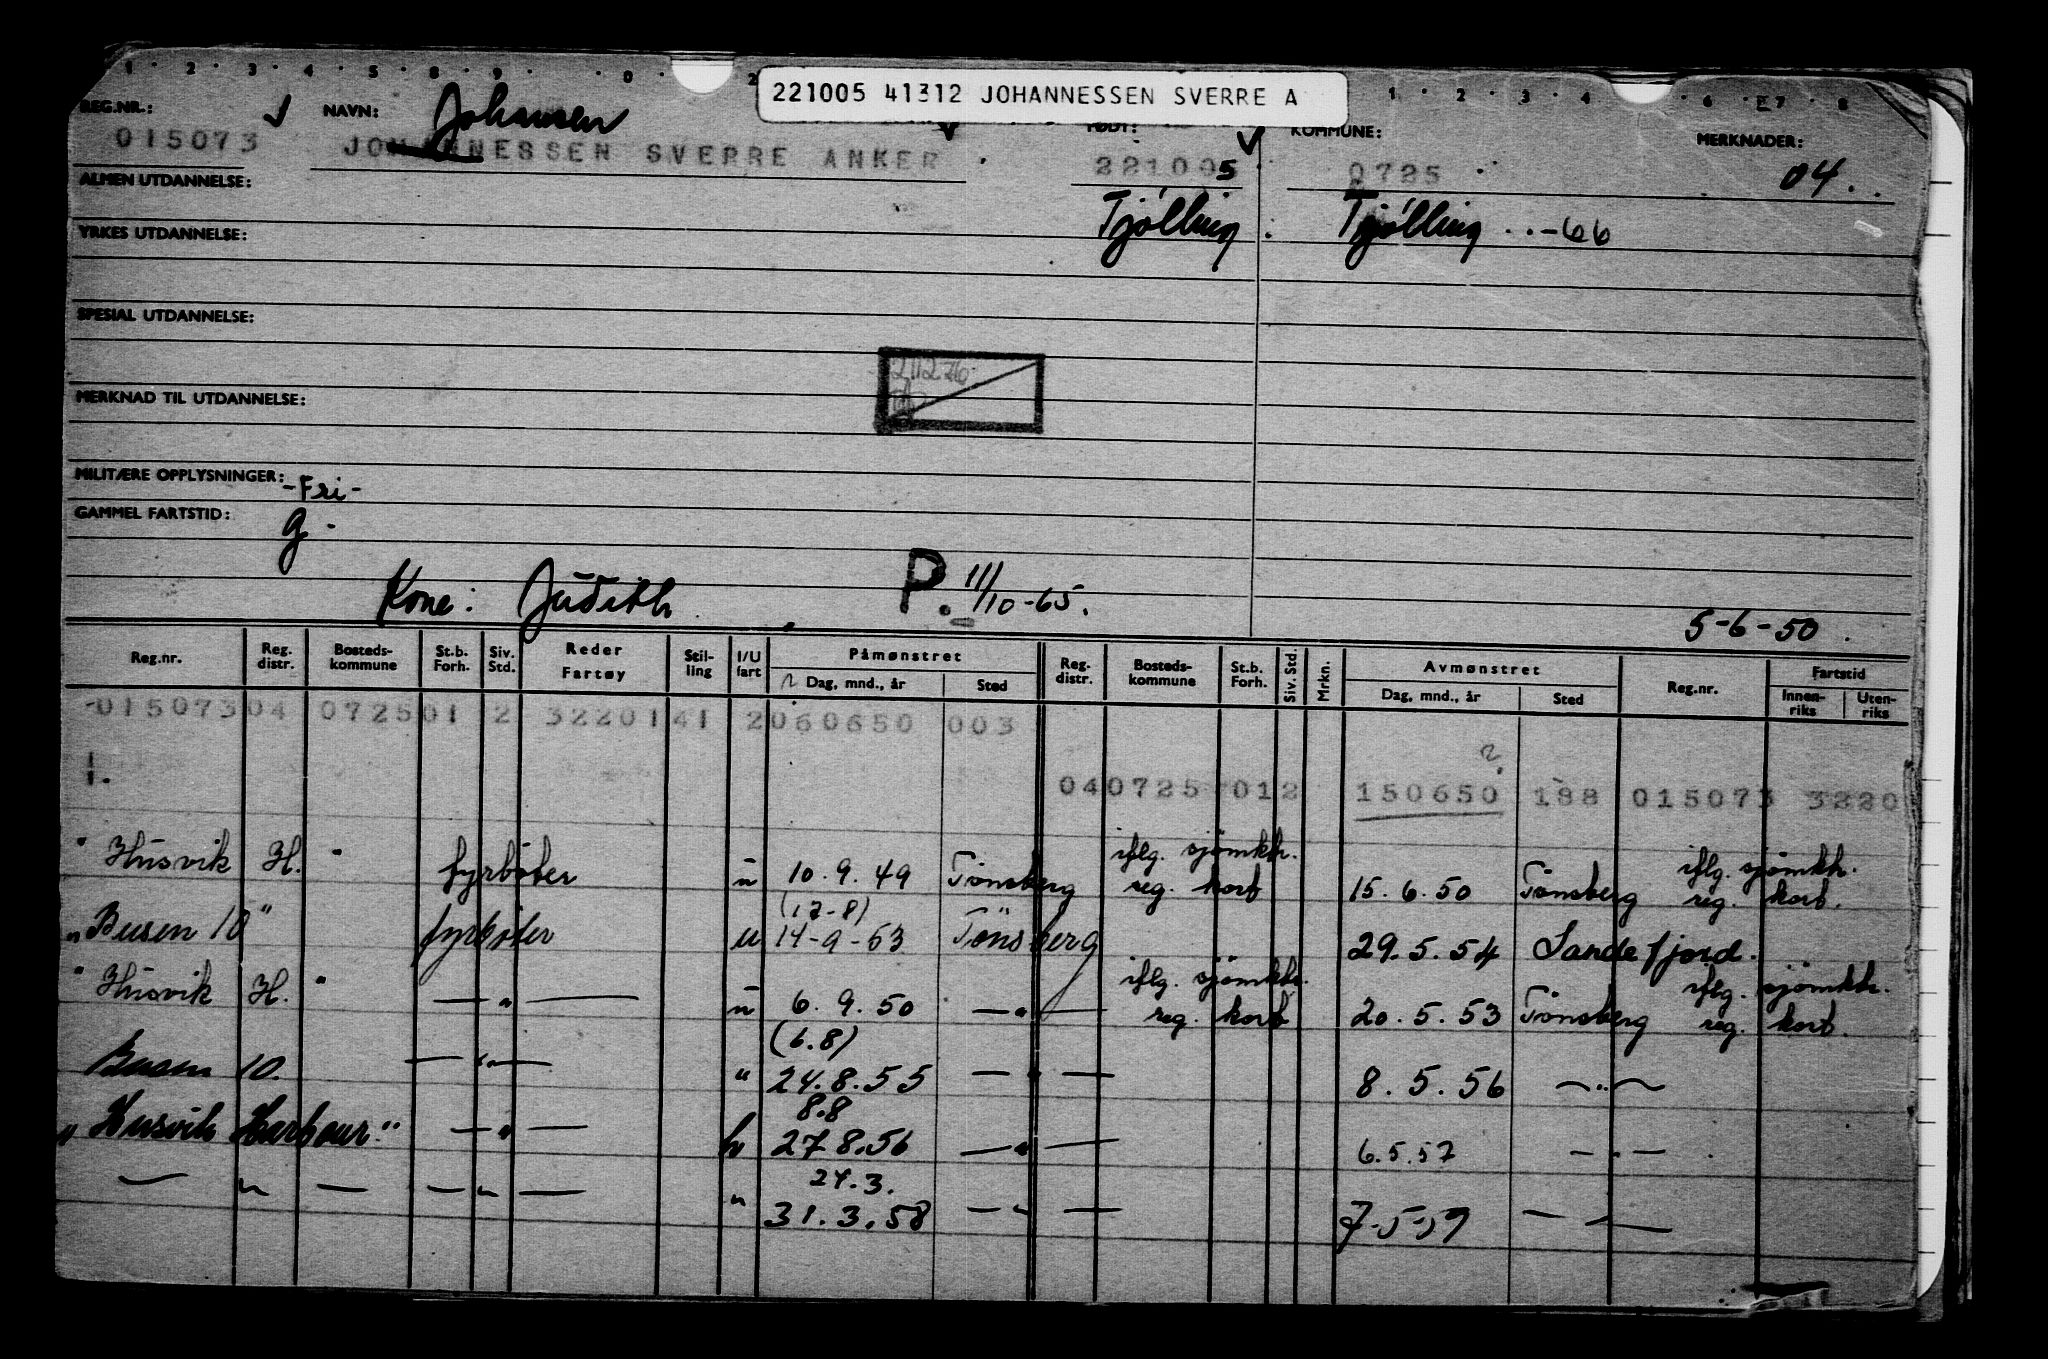 1 2 3 4 5 8 9 0 2 1 2 3 4 6 7 8
221005 41312 JOHANNESSEN SVERRE A
REG.NR.: NAVN: Johansen FØDT: KOMMUNE: MERKNADER:
015073 JOHANNESSEN SVERRE ANKER 221005 0725 04.
ALMEN UTDANNELSE:
Tjølling Tjølling -66
YRKES UTDANNELSE:
SPESIAL UTDANNELSE:
211276
MERKNAD TIL UTDANNELSE:
MILITÆRE OPPLYSNINGER: -Fri-
GAMMEL FARTSTID: g.
Kone: Judith P. 11/10-65.
5-6-50.
Reg.nr. Reg. distr. Bosteds-kommune St.b. Forh. Siv. Std. Reder Fartøy Stil-ling I/U fart Påmønstret Dag, mnd., år Sted Reg. distr. Bosteds-kommune St.b. Forh. Siv. Std. Mrkn. Avmønstret Dag, mnd., år Sted Reg.nr. Fartstid Innen-riks Uten-riks
015073 04 0725 01 2 32201 41 2 060650 003
04 0725 01 2 150650 188 015073 3220
iflg. sjømkh. iflg. sjømkh.
" Husvik H. " fyrbøter u 10.9.49 Tønsberg reg. kort 15.6.50 Tønsberg reg. kort.
(17-8)
" Busen 10 " fyrbøter u 14-9-53 Tønsberg 29.5.54 Sandefjord.
iflg. sjømkh. iflg. sjømkh.
" Husvik H. " — " — u 6.9.50 — " — reg. kort 20.5.53 Tønsberg reg. kort.
(6.8)
Busen 10. — " — " 24.8.55 — " — 8.5.56 — " —
8.8
" Husvik Harbour " — " — u 27.8.56 — " — 6.5.57 — " —
24.3.
— " — — " — " 31.3.58 — " — 7-5-59 — " —